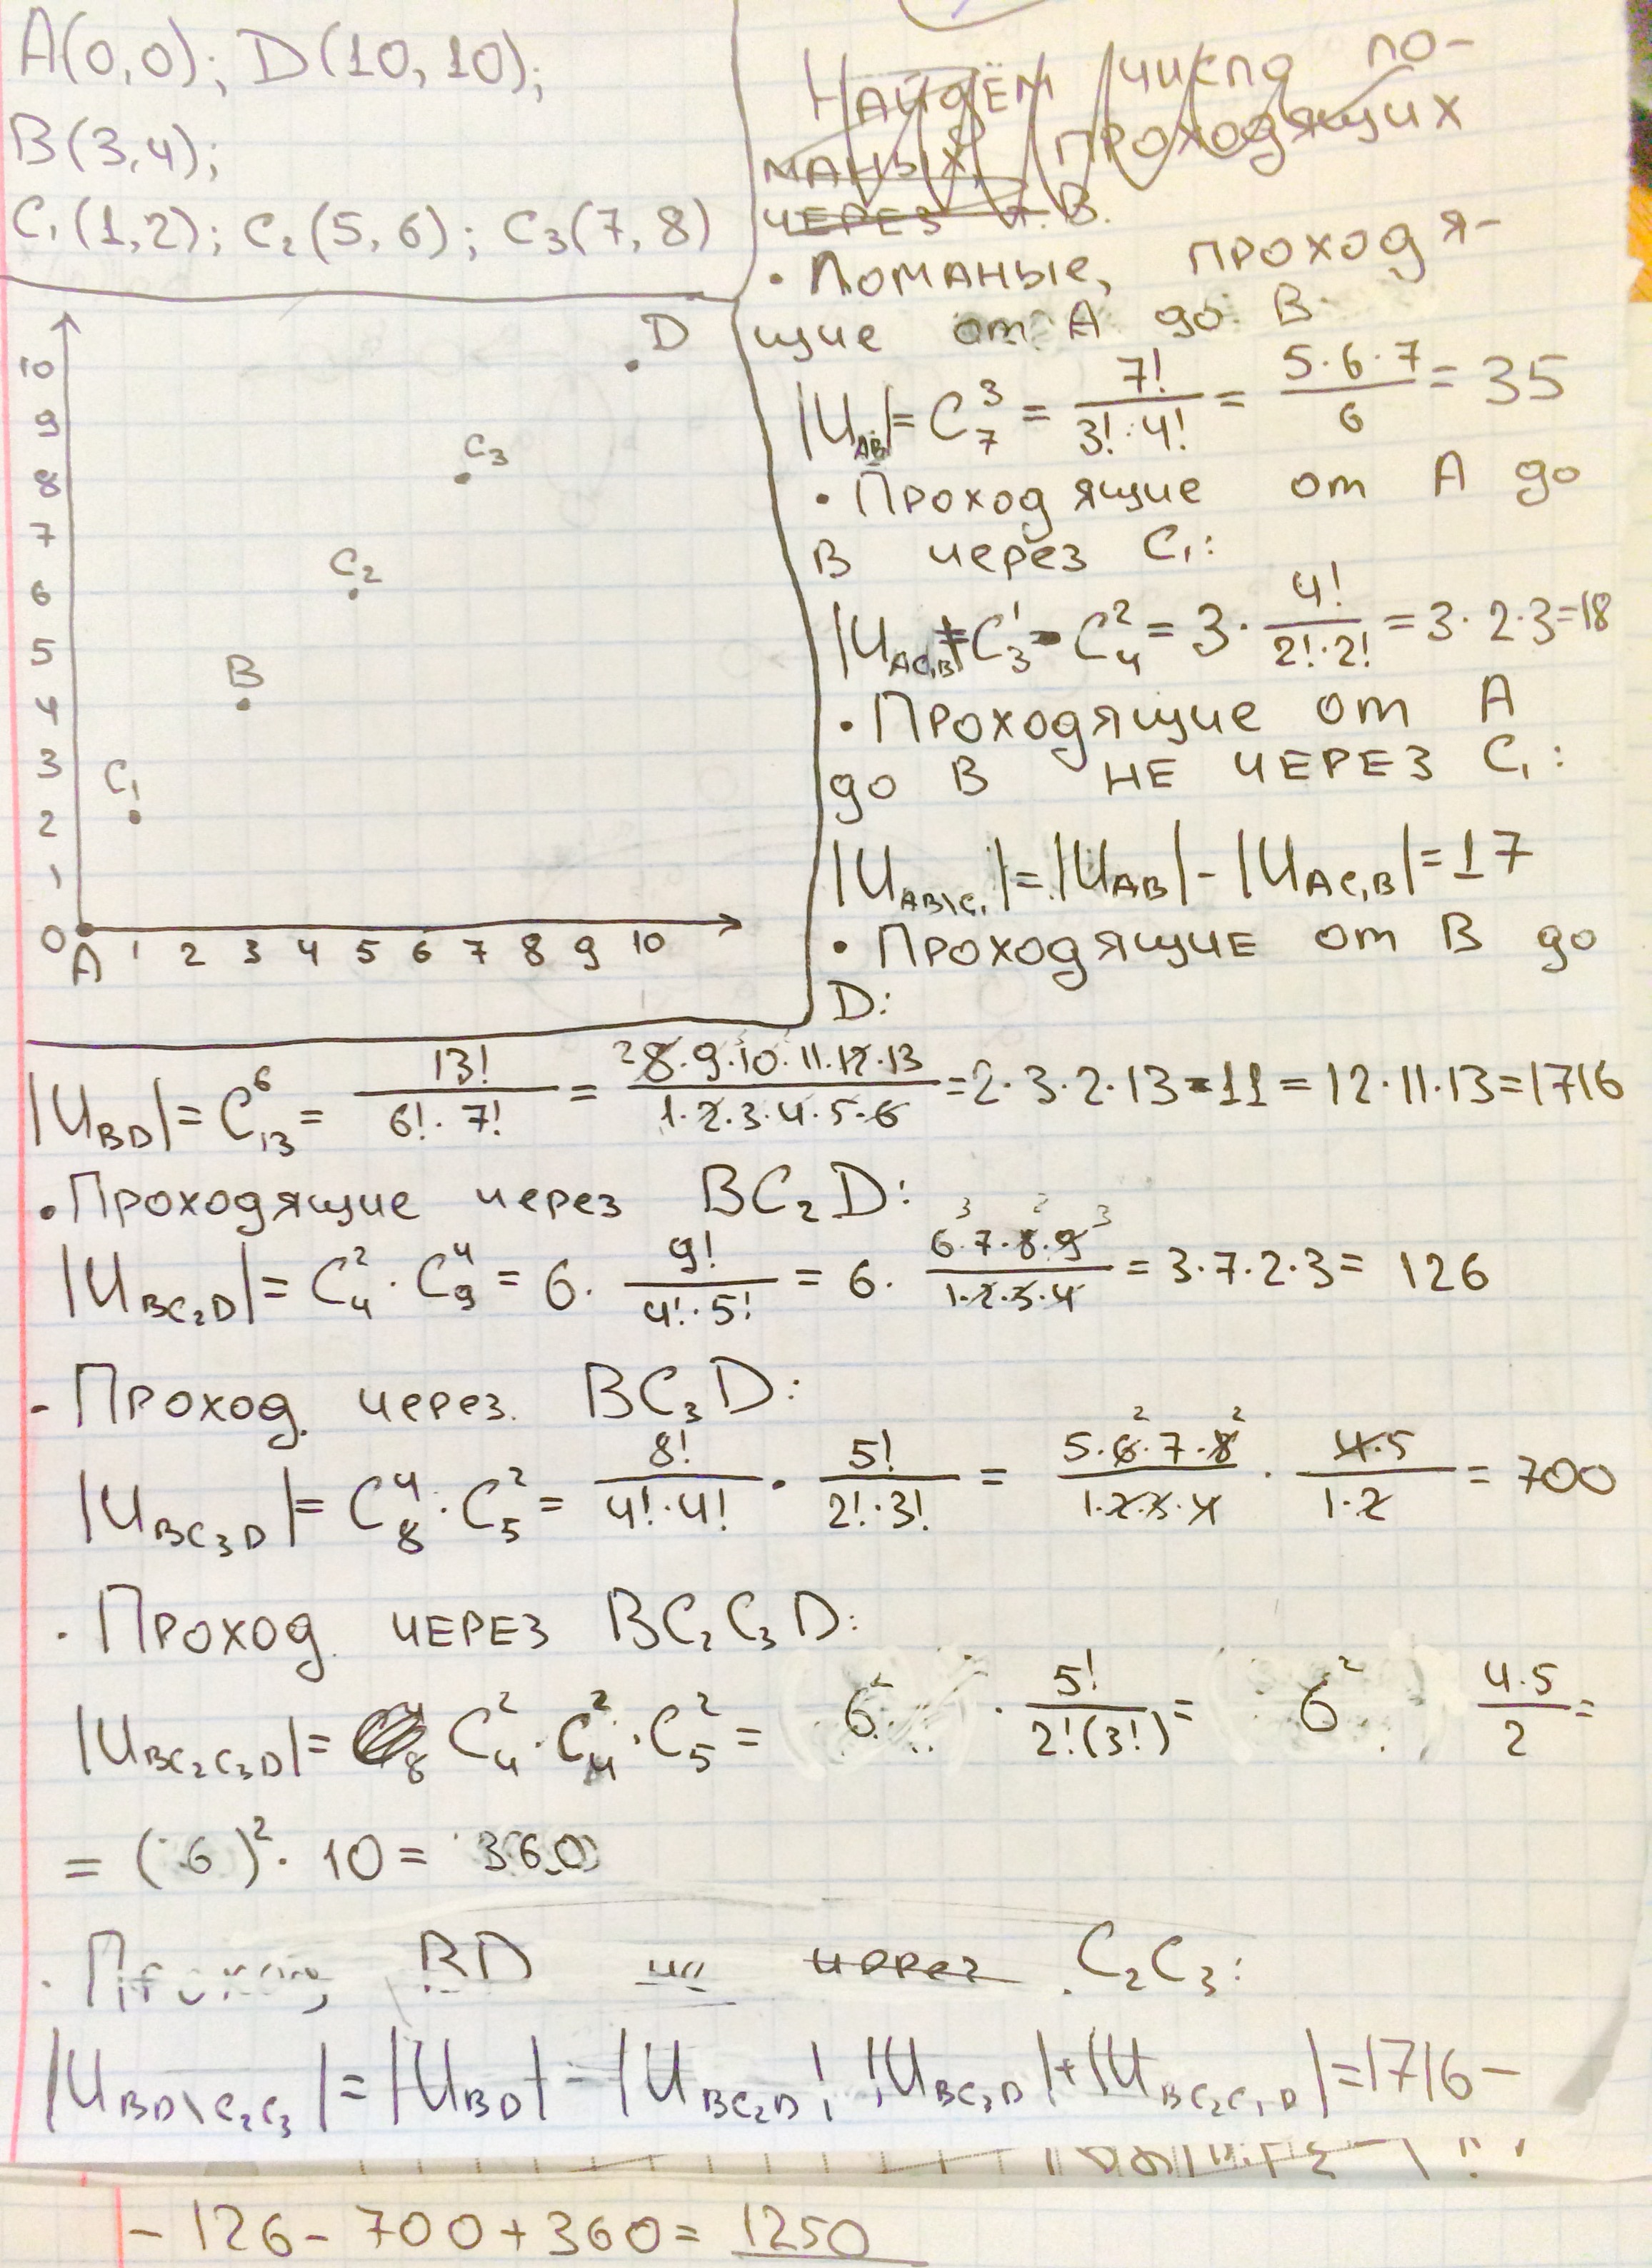 A(0,0); D(10,10);
B(3,4);
C₁(1,2); C₂(5,6); C₃(7,8)
10
9
8
7
6
5
4
3
2
1
0
D
C₃
C₂
B
C₁
A 1 2 3 4 5 6 7 8 9 10
Найдём число ло-
маных, проходящих
через т. В.
• Ломаные, проходя-
щие от А до В
|U_AB| = C₇³ = 7!/(3!·4!) = (5·6·7)/6 = 35
• Проходящие от А до
В через С₁:
|U_AC₁B| = C₃¹ · C₄² = 3 · 4!/(2!·2!) = 3·2·3=18
• Проходящие от А
до В НЕ ЧЕРЕЗ С₁:
|U_AB\C₁| = |U_AB| - |U_AC₁B| = 17
• Проходящие от В до
D:
|U_BD| = C₁₃⁶ = 13!/(6!·7!) = (8·9·10·11·12·13)/(1·2·3·4·5·6) = 2·3·2·13·11 = 12·11·13 = 1716
• Проходящие через BC₂D:
|U_BC₂D| = C₄² · C₉⁴ = 6 · 9!/(4!·5!) = 6 · (6·7·8·9)/(1·2·3·4) = 3·7·2·3 = 126
- Проход. через BC₃D:
|U_BC₃D| = C₈⁴ · C₅² = 8!/(4!·4!) · 5!/(2!·3!) = (5·6·7·8)/(1·2·3·4) · (4·5)/(1·2) = 700
· Проход. ЧЕРЕЗ BC₂C₃D:
|U_BC₂C₃D| = C₄² · C₄² · C₅² = 6² · 5!/(2!(3!)) = 6² (4·5)/2 =
= (6)² · 10 = 360
· BD не через C₂C₃:
|U_BD\C₂C₃| = |U_BD| - |U_BC₂D| |U_BC₃D| + |U_BC₂C₃D| = 1716 -
- 126 - 700 + 360 = 1250